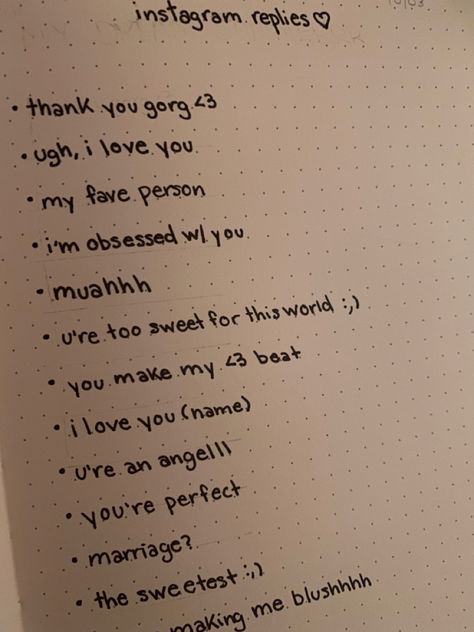 instagram replies♡
• thank you gorg <3
• ugh, i love you
• my fave person
• i'm obsessed w/ you
• muahhh
• u're too sweet for this world :,)
• you make my <3 beat
• i love you (name)
• u're an angelll
• you're perfect
• marriage?
• the sweetest :,)
making me blushhhh